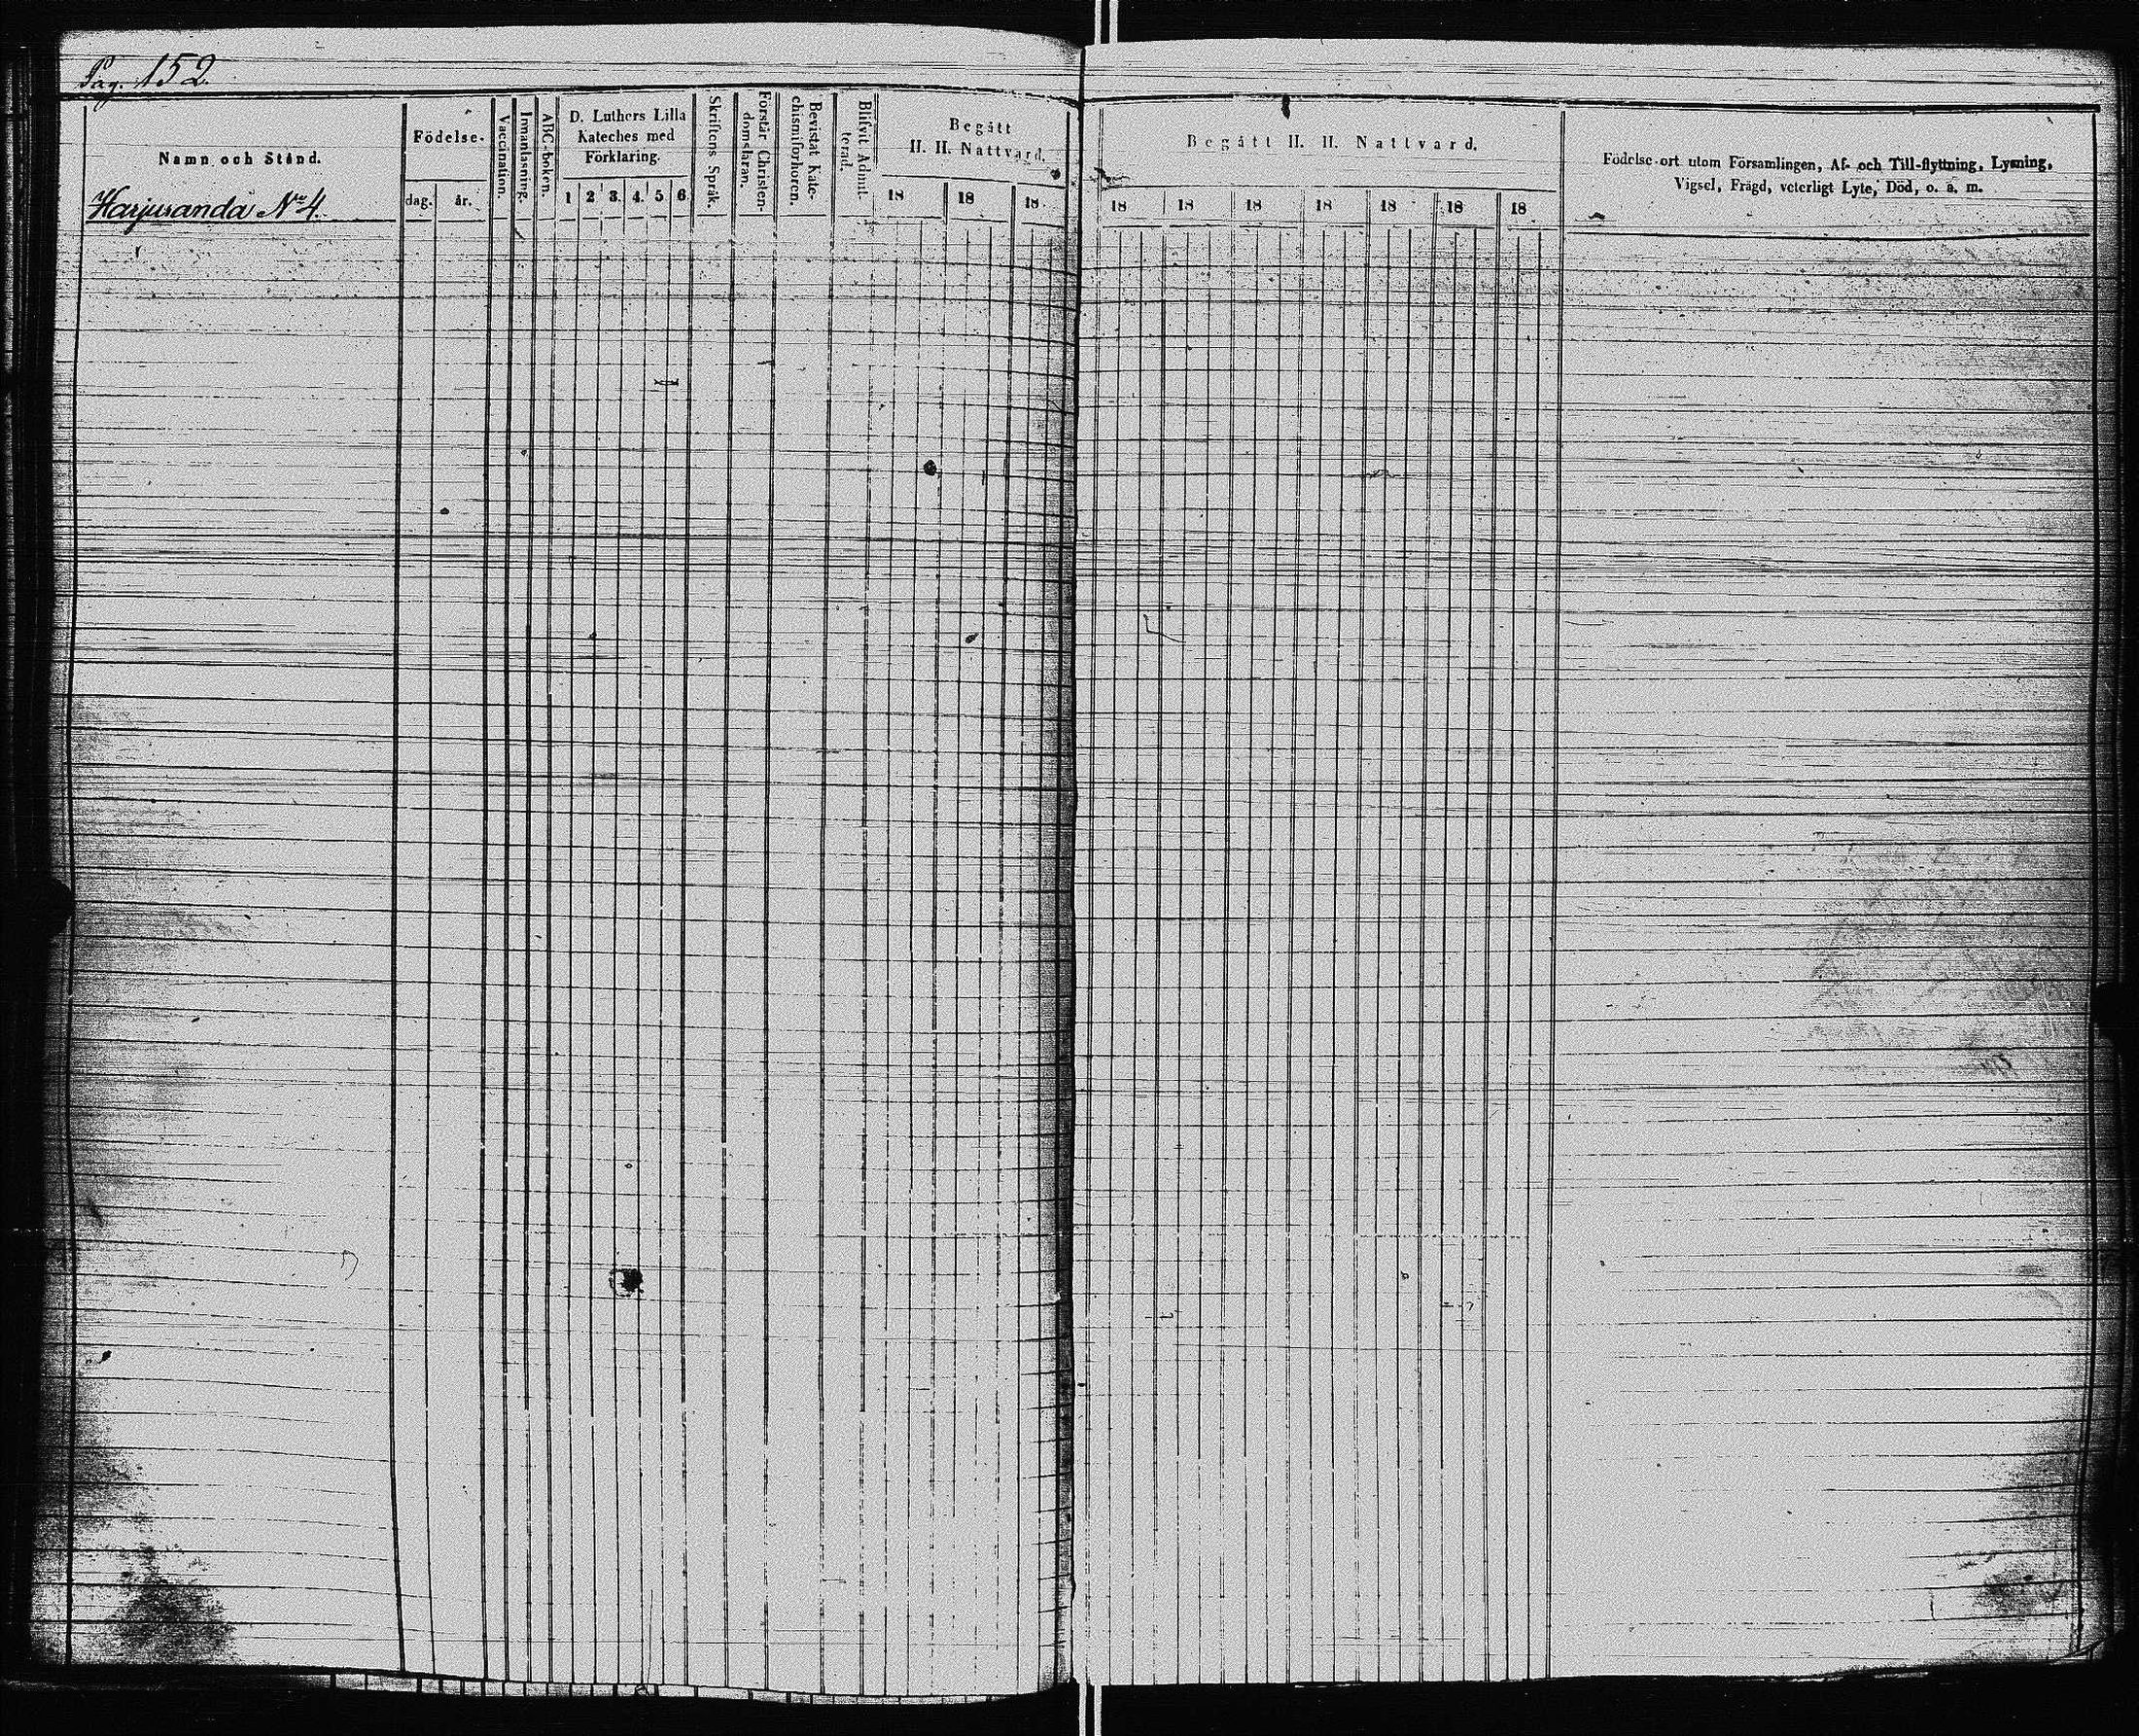 Pag. 152.
Namn och Stånd.
Harjuranda No 4.
Födelse-
dag.
år.
Vaccination.
Innanläsning.
ABC-boken.
D. Luthers Lilla
Kateches med
Förklaring.
1 2 3. 4. 5 6
Skriftens Språk.
Förstår Christen-
domsläran.
Bevistat Kate-
chismiförhören.
Blifvit Admit-
terad.
Begått
H. H. Nattvard.
18 18 18
Begått H. H. Nattvard.
18 18 18 18 18 18 18
Födelse-ort utom Församlingen, Af- och Till-flyttning, Lysning,
Vigsel, Frägd, veterligt Lyte, Död, o. a. m.